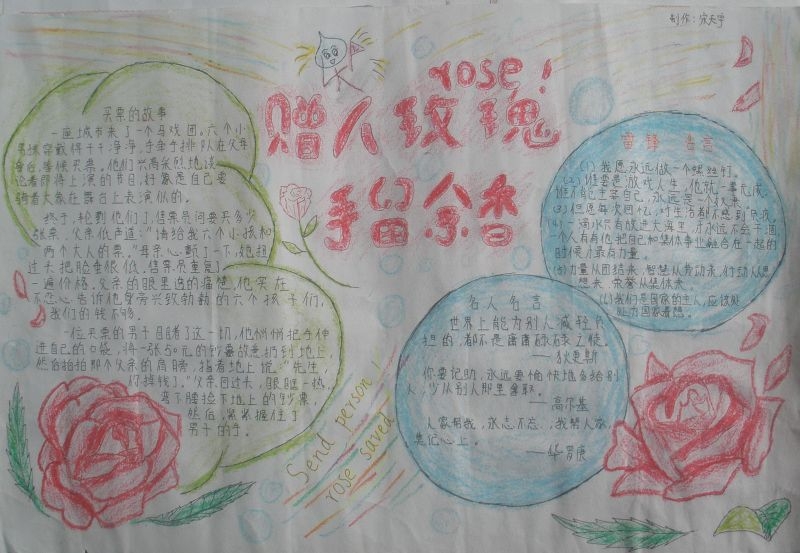 制作：宋天宇
rose!
赠人玫瑰
手留余香
买票的故事
一座城市来了一个马戏团。六个小
男孩穿戴得干干净净，手牵手排队在父母
身后，等候买票。他们兴高采烈地谈
论着即将上演的节目，好像是自己要
骑着大象在舞台上表演似的。
终于，轮到他们了，售票员问要买多少
张票，父亲低声道："请给我六个小孩和
两个大人的票。"母亲心颤了一下，她扭
过头把脸垂得很低。售票员重复了
一遍价格。父亲的眼里透的痛楚，他实在
不忍心告诉他身旁兴致勃勃的六个孩子们，
我们的钱不够。
一位买票的男子目睹了这一切，他悄悄把手伸
进自己的口袋，将一张50元的钞票故意扔到地上，
然后拍拍那个父亲的肩膀，指着地上说："先生，
你掉钱了。"父亲回过头，眼眶一热，
弯下腰捡下地上的钞票，
然后，紧紧握住了
男子的手。
Send person
rose saved
雷锋名言
(1)我愿永远做一个螺丝钉。
(2)谁要是游戏人生，他就一事无成，
谁不能主宰自己，永远是一个奴隶。
(3)但愿每次回忆，对生活都不感到负疚
(4)一滴水只有放进大海里，才永远不会干涸，
一个人有有他把自己和集体事业融合在一起的
时候才最有力量。
(5)力量从团结来，智慧从劳动来，行动从思
想来，荣誉从集体来。
(6)我们是国家的主人，应该处
处为国家着想。
名人名言
世界上能为别人减轻负
担的，都不是庸庸碌碌之徒。
——狄更斯
你要记助，永远要愉快地多给别
人，少从别人那里拿取。
——高尔基
人家帮我，永志不忘，我帮人家，
莫记心上。
——华罗庚